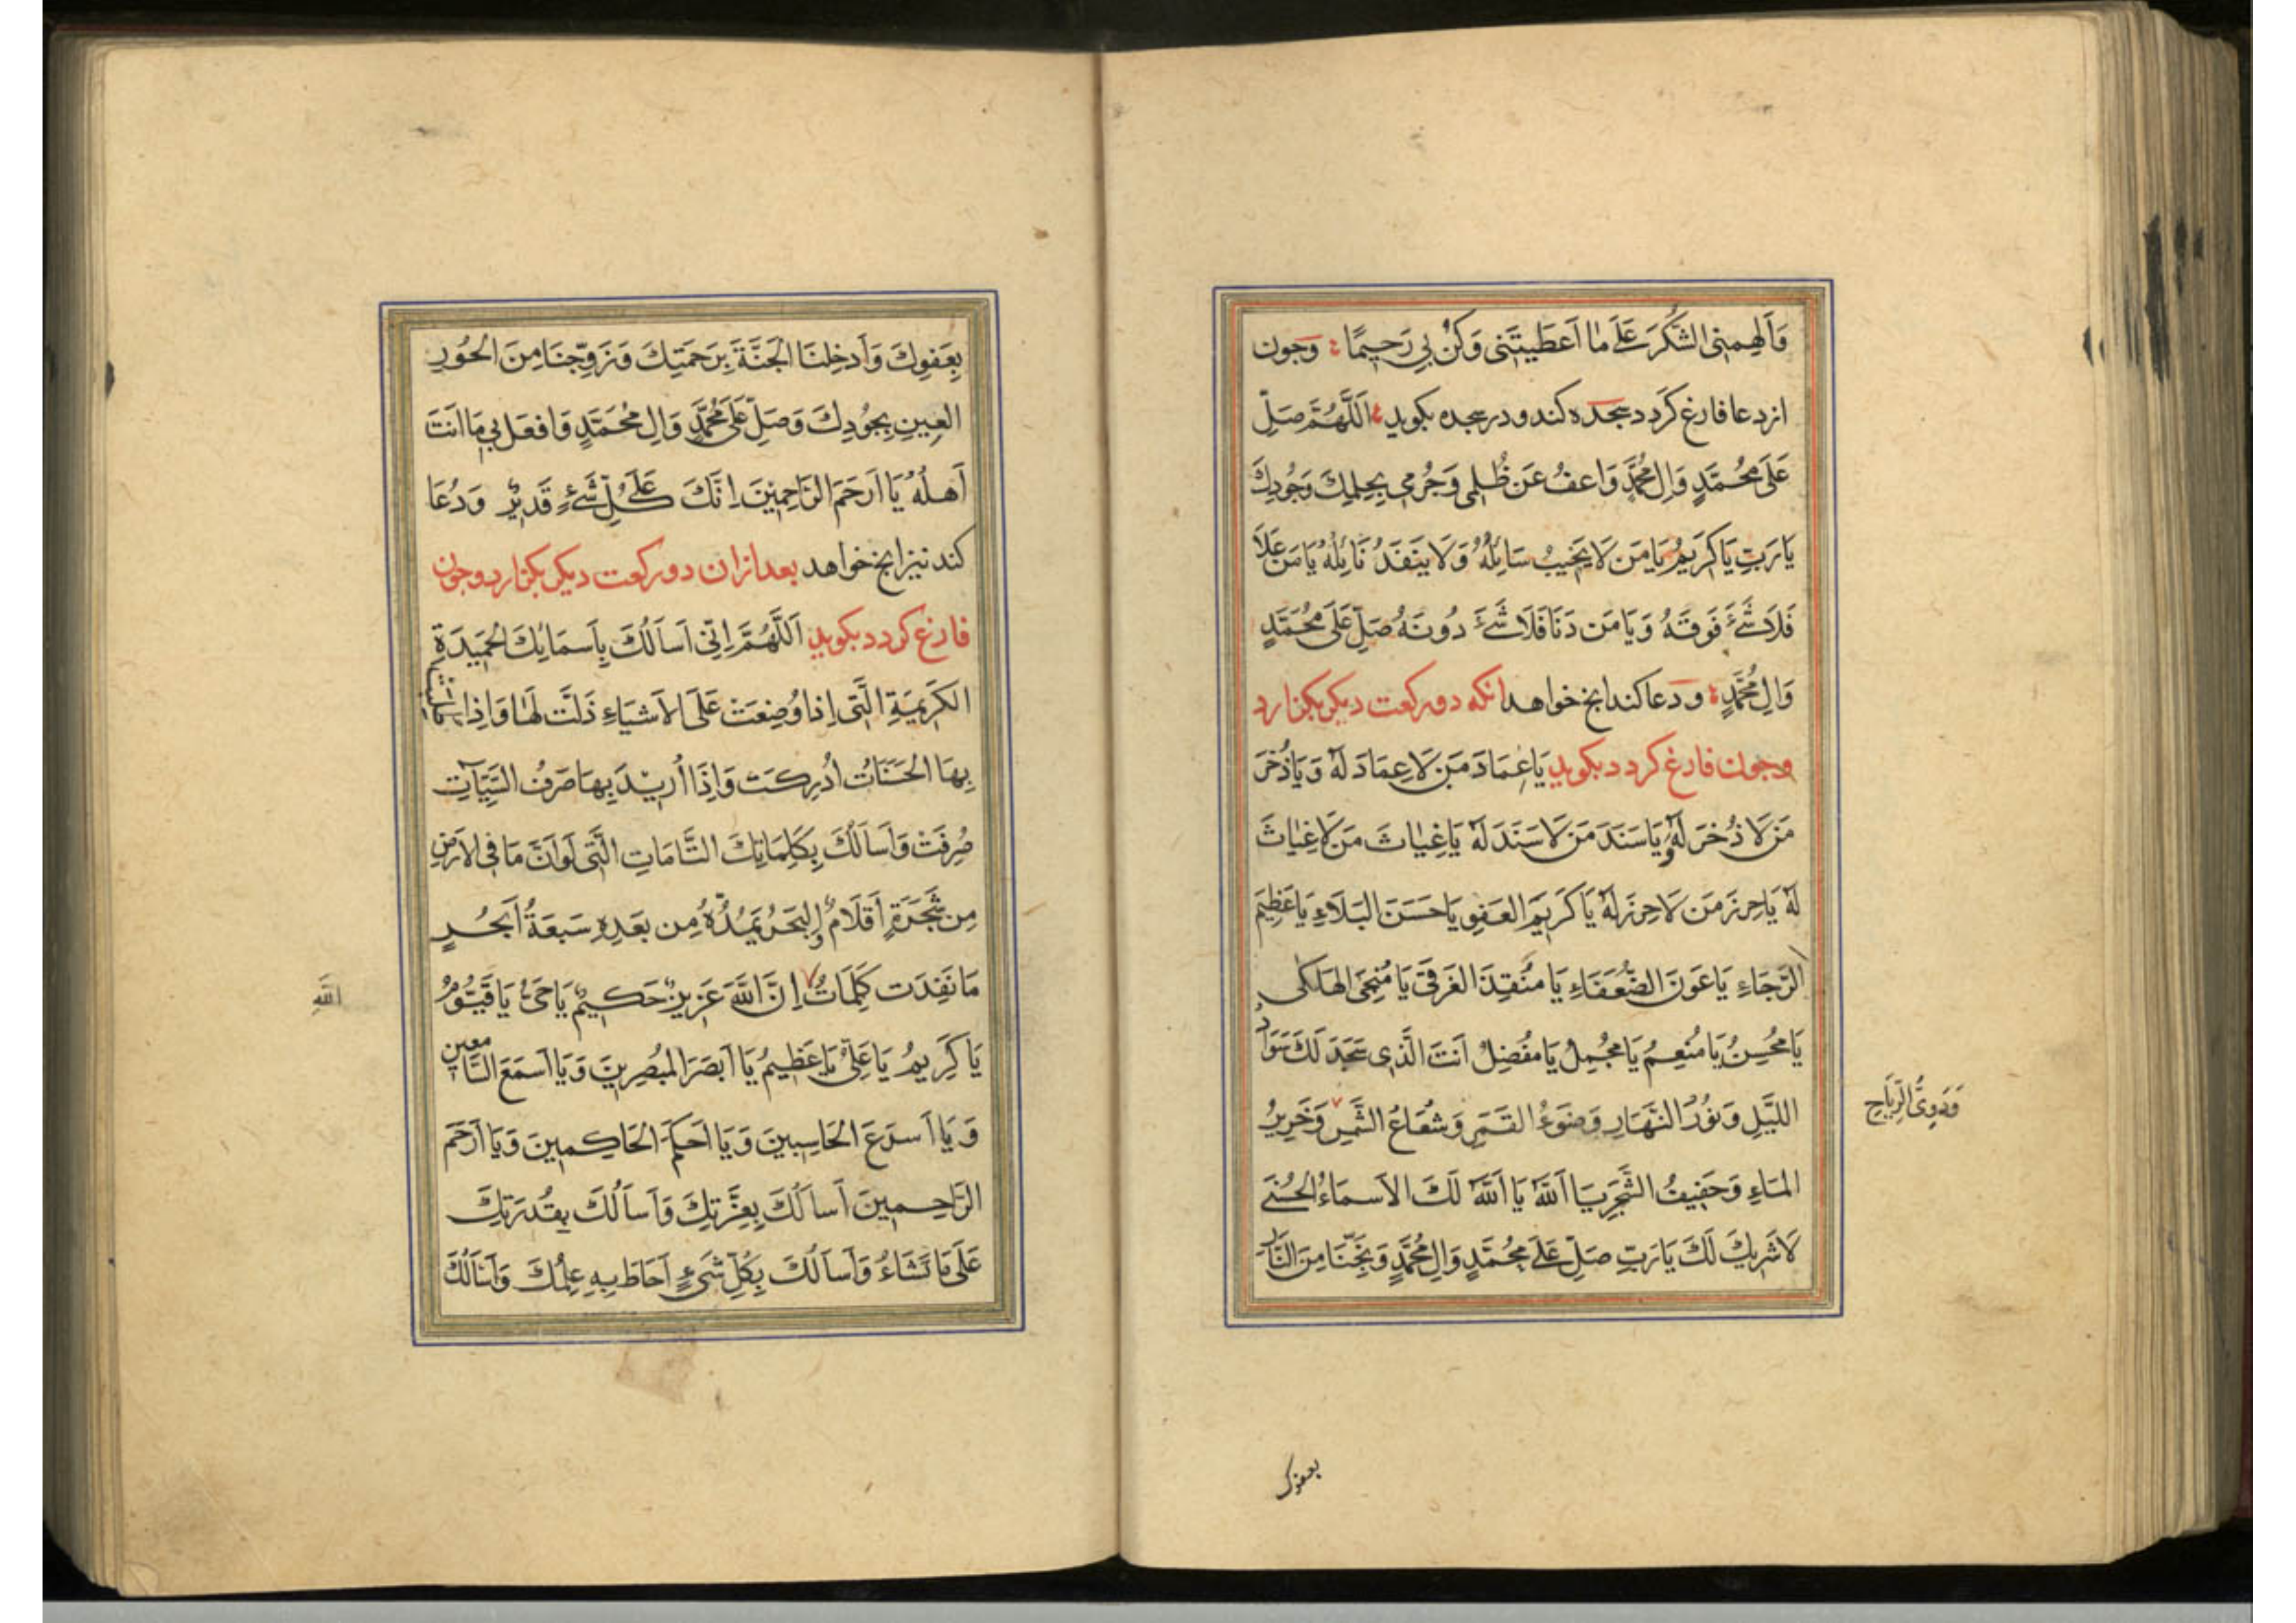 وَاَلهِمنِى الشُّكرَ عَلَى مٰا اَعطَيتَنى وَكُنْ بي رَحِيمًا وچون
ازدعا فارغ كردد سجده كند ودر سجده بكويد اَللَّهُمَّ صَلِّ
عَلَى مُحَمَّدٍ وَالِ مُحَمَّدٍ وَاعفُ عَن ظُلمِى وَجُرمى بِحِلمِكَ وَجُودِكَ
يَا رَبِّ يَا كَرَيمُ يَا مَن لَا يَخيبُ سَائِلُهُ وَلَا يَنفَدُ نَائِلُهُ يَا مَن عَلَا
فَلَا شَىءَ فَوقَهُ وَيَا مَن دَنَا فَلَا شَىءَ دُونَهُ صَلِّ عَلَى مُحَمَّدٍ
وَالِ مُحَمَّدٍ ودعا كند ابخ خواهد انكه دو ركعت ديكر بكزارد
وچون فارغ كردد بكويد يَا عِمَادَ مَن لَا عِمَادَ لَهُ وَيَا ذُخرَ
مَن لَا ذُخرَ لَهُ وَيَا سَنَدَ مَن لَا سَنَدَ لَهُ يَا غِيٰاثَ مَن لَا غِيٰاثَ
لَهُ يَا حِرزَ مَن لَا حِرزَ لَهُ يَا كَرَيمَ العَفوِ يَا حَسَنَ البَلَاءِ يَا عَظِيمَ
الرَّجَاءِ يَا عَونَ الضُّعَفَاءِ يَا مُنقِذَ الغَرقَى يَا مُنجِىَ الهَلكَى
يَا مُحسِنُ يَا مُنعِمُ يَا مُجمِلُ يَا مُفضِلُ اَنتَ الَّذِى سَجَدَ لَكَ سَوَادُ
اللَّيلِ وَنُورُ النَّهَارِ وَضَوءُ القَمَرِ وَشُعَاعُ الشَّمسِ وَخَرِيرُ
وَدَوِىُّ الرِّيَاحِ
المَاءِ وَحَفيفُ الشَّجَرِ يَا اَللّٰهُ يَا اَللّٰهُ لَكَ الاَسمَاءُ الحُسنَى
لَا شَرِيكَ لَكَ يَا رَبِّ صَلِّ عَلَى مُحَمَّدٍ وَالِ مُحَمَّدٍ وَنَجِّنَا مِنَ النَّارِ
بعفوك
بِعَفوِكَ وَاَدخِلنَا الجَنَّةَ بِرَحمَتِكَ وَزَوِّجنَا مِنَ الحُورِ
العِينِ بِجُودِكَ وَصَلِّ عَلَى مُحَمَّدٍ وَالِ مُحَمَّدٍ وَافعَل بي مَا اَنتَ
اَهلُهُ يَا اَرحَمَ الرَّاحِمِينَ اِنَّكَ عَلَى كُلِّ شَىءٍ قَدِيرٌ وَدُعَا
كند نيز ابخ خواهد بعد ازان دو ركعت ديكر بكزارد وچون
فارغ كردد بكويد اَللَّهُمَّ اِنّى اَساَلُكَ بِاَسمَائِكَ الحَمِيدَةِ
الكَرِيمَةِ الَّتى اِذا وُضِعَتْ عَلَى الاَشيَاءِ ذَلَّت لَهَا وَاِذا
بِهَا الحَسَنَاتُ اُدرِكَت وَاِذَا اُرِيدَ بِهَا صَرفُ السَّيِّاٰتِ
صُرِفَتْ وَاَساَلُكَ بِكَلِمَاتِكَ التَّامَاتِ الَّتى لَو اَنَّ مَا فِى الاَرضِ
مِن شَجَرَةٍ اَقلَامٌ وَالبَحرُ يَمُدُّهُ مِن بَعدِهِ سَبعَةُ اَبحُرٍ
مَا نَفِدَت كَلِمَاتُ اِنَّ اللّٰهَ عَزِيزٌ حَكِيمٌ يَا حَىُّ يَا قَيُّومُ
اللّٰهِ
يَا كَرِيمُ يَا عَلِىُّ يَا عَظِيمُ يَا اَبصَرَ المُبصِرِينَ وَيَا اَسمَعَ السَّامعين
وَيَا اَسرَعَ الحَاسِبينَ وَيَا اَحكَمَ الحَاكِمينَ وَيَا اَرحَمَ
الرَّاحِمينَ اَساَلُكَ بِعِزَّتِكَ وَاَساَلُكَ بِقُدرَتِكَ
عَلَى مَا تَشَاءُ وَاَساَلُكَ بِكُلِّ شَىءٍ اَحَاطَ بِهِ عِلمُكَ وَاَساَلُكَ